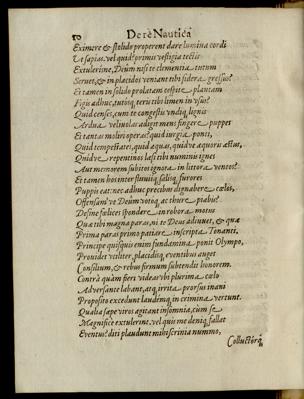 50 De rè Nautica
Eximere & stolido properent dare lumina cordi
Vt sapias, vel quid? primis vestigia tectis
Extulerine, Deûm nisi te clementia tutum
Seruet, & in placidos veniant tibi sidera gressus?
Et tamen in solido prolatam cespite plantam
Figis adhuc, tutóq; teru tibi limen in vsu?
Quid censes, cum te congestis vndiq; lignis
Ardua veliuolas adigit mens fingere puppes
Et tantas moliri opera? quid iurgia ponti,
Quid tempestates, quid aquas, quidve aquores actus,
Quidve repentinos lasi tibi numinis ignes
Aut memorem subitos ignota in littora ventos?
Et tamen hos inter fluuiûq; salisq; furores
Puppis eat: nec adhuc precibus dignabere cœlos,
Offensúmve Deum votoq, ac thure piabis?
Desine fœlices spondere in robora motus
Quæ tibi magna paras, ni te Deus adiuuet, & quæ
Prima paras primo patiare inscripta Tonanti,
Principe quisquis enim fundamina ponit Olympo,
Prouidet vtiliter, placidisq; euentibus auget
Consilium, & rebus firmum subtendit honorem.
Contrà quàm fieri videas vbi plurima cœlo
Aduersante labant, atq; irrita prorsus inani
Proposito excedunt laudemq; in crimina vertunt.
Qualia sæpe viros agitant insomnia, cùm se
Magnificè extulerint, vel quis me deniq; fallat
Euentus? diti plaudunt mihi scrinia nummo,
Collectórq;